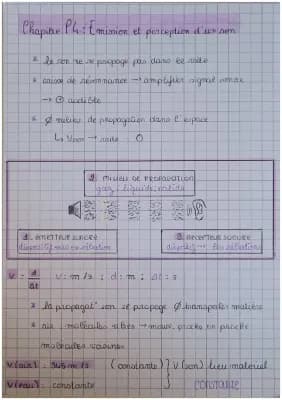 Chapitre P4 : Emission et perception d'un son
* le son ne se propage pas dans le vide
* caisse de résonnance → amplifier signal sonore
→ ⊕ audible
* ∅ milieu de propagation dans l'espace
↳ Vson → vide : 0
2. MILIEU DE PROPAGATION
gaz / liquide / solide
1. EMETTEUR SONORE
dispositif mis en vibration
3. RECEPTEUR SONORE
dispositif → les vibrations
v = d/Δt v : m/s ; d : m ; Δt : s
* la propagat° son se propage ∅ transporter matière
* air molécules proche en proche
molécules voisines
V(air) : 345 m/s (constante) } V(son) milieu matériel
V(eau) : constante constante